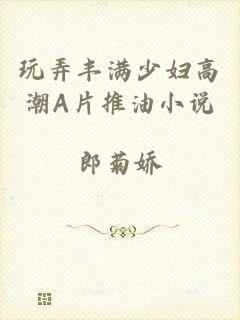 玩弄丰满少妇高
潮A片推油小说
郎菊娇